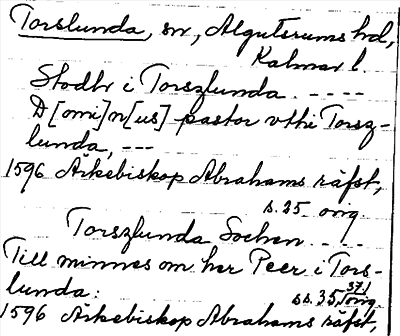 Torslunda, sn, Algutsrums hd,
Kalmar l.
Stodhr i Torszlunda. ----
D[omi]n[us] pastor vthi Torsz-
lunda, ---
1596 Ärkebiskop Abrahams räfst,
s. 25 orig.
Torszlunda Sochen ----
Till minnes om her Peer i Tors-
lunda:
ss. 35, 37 orig.
1596 Ärkebiskop Abrahams räfst